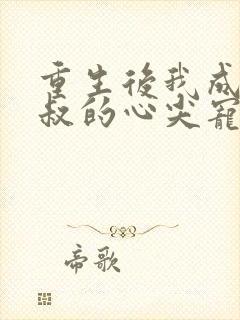 重生後我成
叔的心尖寵
帝歌